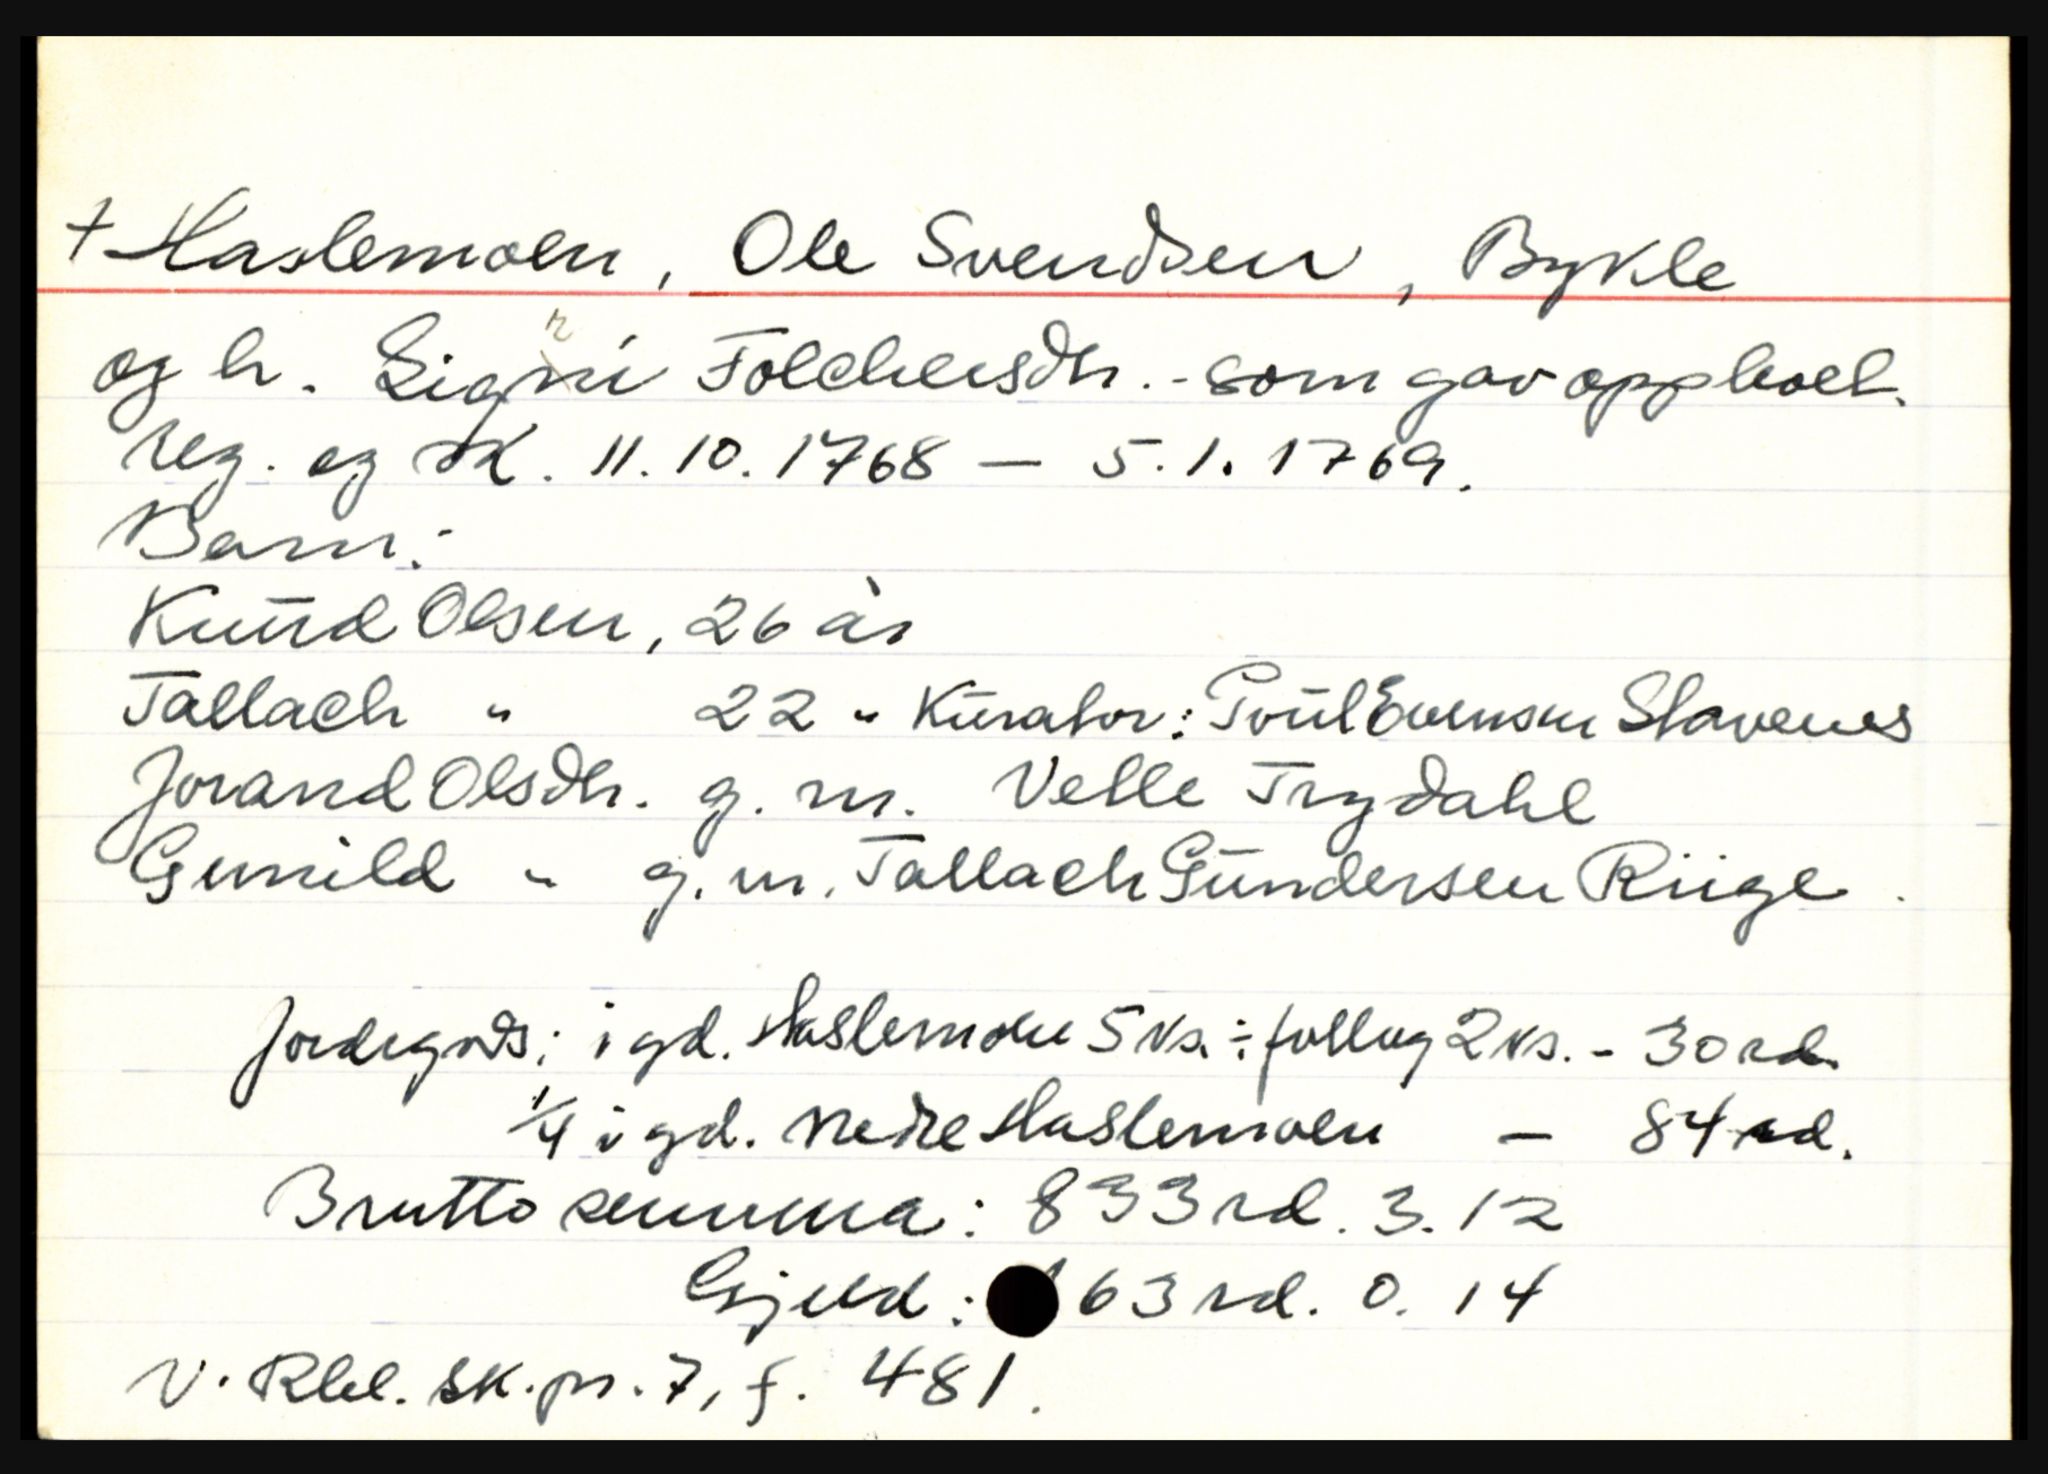 + Haslemoen, Ole Svendsen, Bykle
og h. Signi Folchersdtr. - som gav opp boet.
reg. og sk. 11.10.1768 — 5.1.1769.
Barn:
Knud Olsen, 26 år
Tallach " 22 " Kurator: Poul Evensen Stavenes
Jorand Olsdtr. g. m. Velle Trydahl
Gunild " g. m. Tallach Gundersen Riige.
Jordegods: i gd. Haslemoen 5 ks. ÷ follug 2 ks. - 30 rd.
1/4 i gd. Nedre Haslemoen — 84 rd.
Brutto summa: 833 rd. 3. 12
Gjeld: 63 rd. 0. 14
V. Rbl. sk. pr. 7, f. 481.